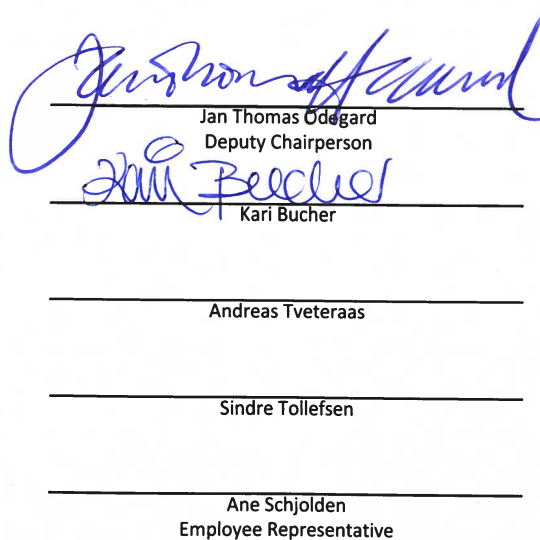 Jan Thomas Odegard
Deputy Chairperson
Kari Bucher
Kari Bucher
Andreas Tveteraas
Sindre Tollefsen
Ane Schjolden
Employee Representative